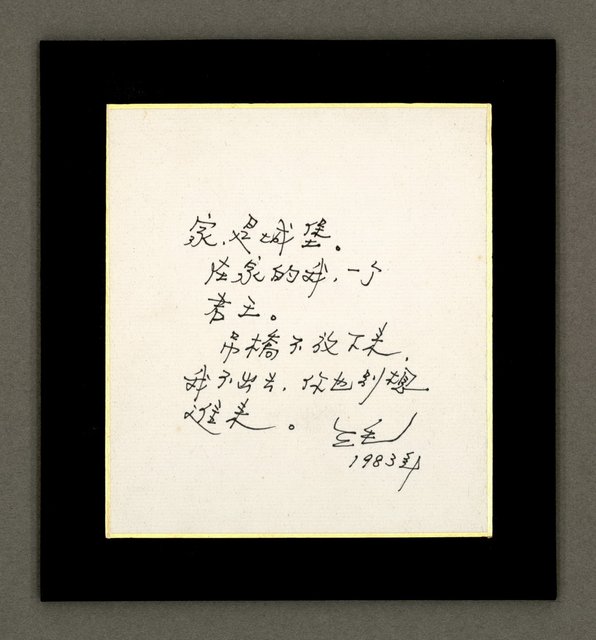 家，是城堡。
在家的我，一个
君主。
吊橋不放下來，
我不出去，你也別想
進來。
三毛
1983年